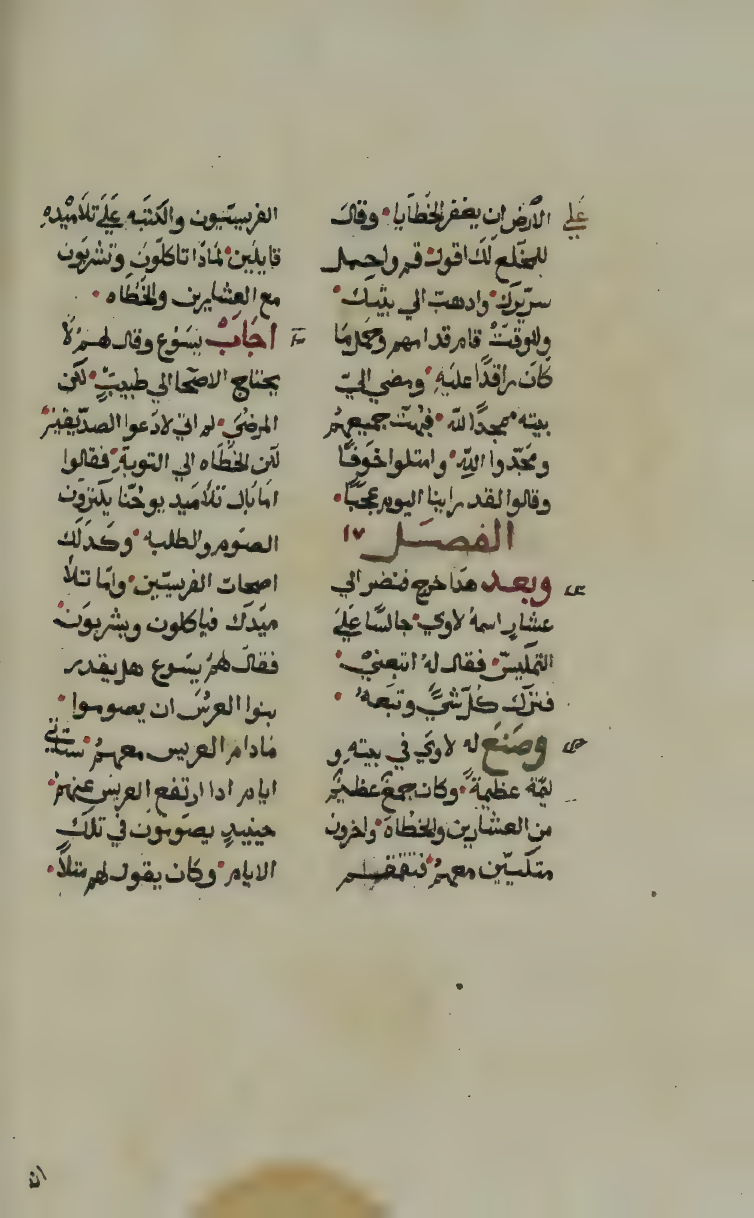 علي
الارض ان يغفر الخطايا وقال
للمخلع لك اقول قم واحمل
سريرك وادهب الي بيتك
وللوقت قام قدامهم وحمل ما
كان راقدا عليه ومضي الي
بيته ممجدا لله فبهت جميعهم
ومجدوا الله وامتلوا خوفا
وقالوا لقد راينا اليوم عجبا
الفصل ١٧
وبعد هدا خرج فنضر الي
عشار اسمه لاوي جالسا علي
التمكيس فقال له اتبعني
فترك كل شي وتبعه
وصنع له لاوي في بيته و
ليمة عظيمة وكان جمع عظيم
من العشارين والخطاه واخرون
متكيين معهم فتقمقم
الفريسيون والكتبه علي تلاميده
قايلين لمادا تاكلون وتشربون
مع العشارين والخطاه
اجاب يسوع وقال لهم لا
يحتاج الاصحا الي طبيب لكن
المرضي لم اتي لادعوا الصديقين
لكن الخطاه الي التوبة فقالوا
اما بال تلاميد يوحنا يكترون
الصوم والطلبه وكدلك
اصحاب الفريسيين واما تلا
ميدك فياكلون ويشربون
فقال لهم يسوع هل يقدر
بنوا العرس ان يصوموا
مادام العريس معهم ستاتي
ايام ادا ارتفع العريس عنهم
حينيد يصومون في تلك
الايام وكان يقول لهم متلا